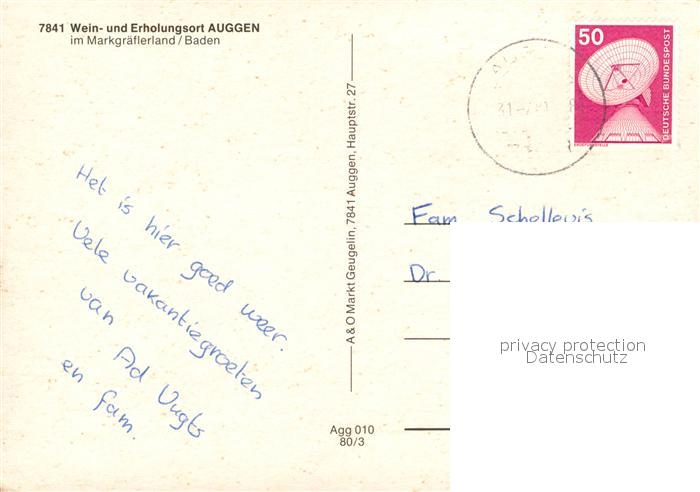 7841 Wein- und Erholungsort AUGGEN
im Markgräflerland / Baden
50
DEUTSCHE BUNDESPOST
ERDEFUNKSTELLE
Het is hier goed weer.
Vele vakantiegroeten
van Ad Vugts
en fam.
A & O Markt Geugelin, 7841 Auggen, Hauptstr. 27
Fam. Schellevis
Dr.
privacy protection
Datenschutz
Agg 010
80/3